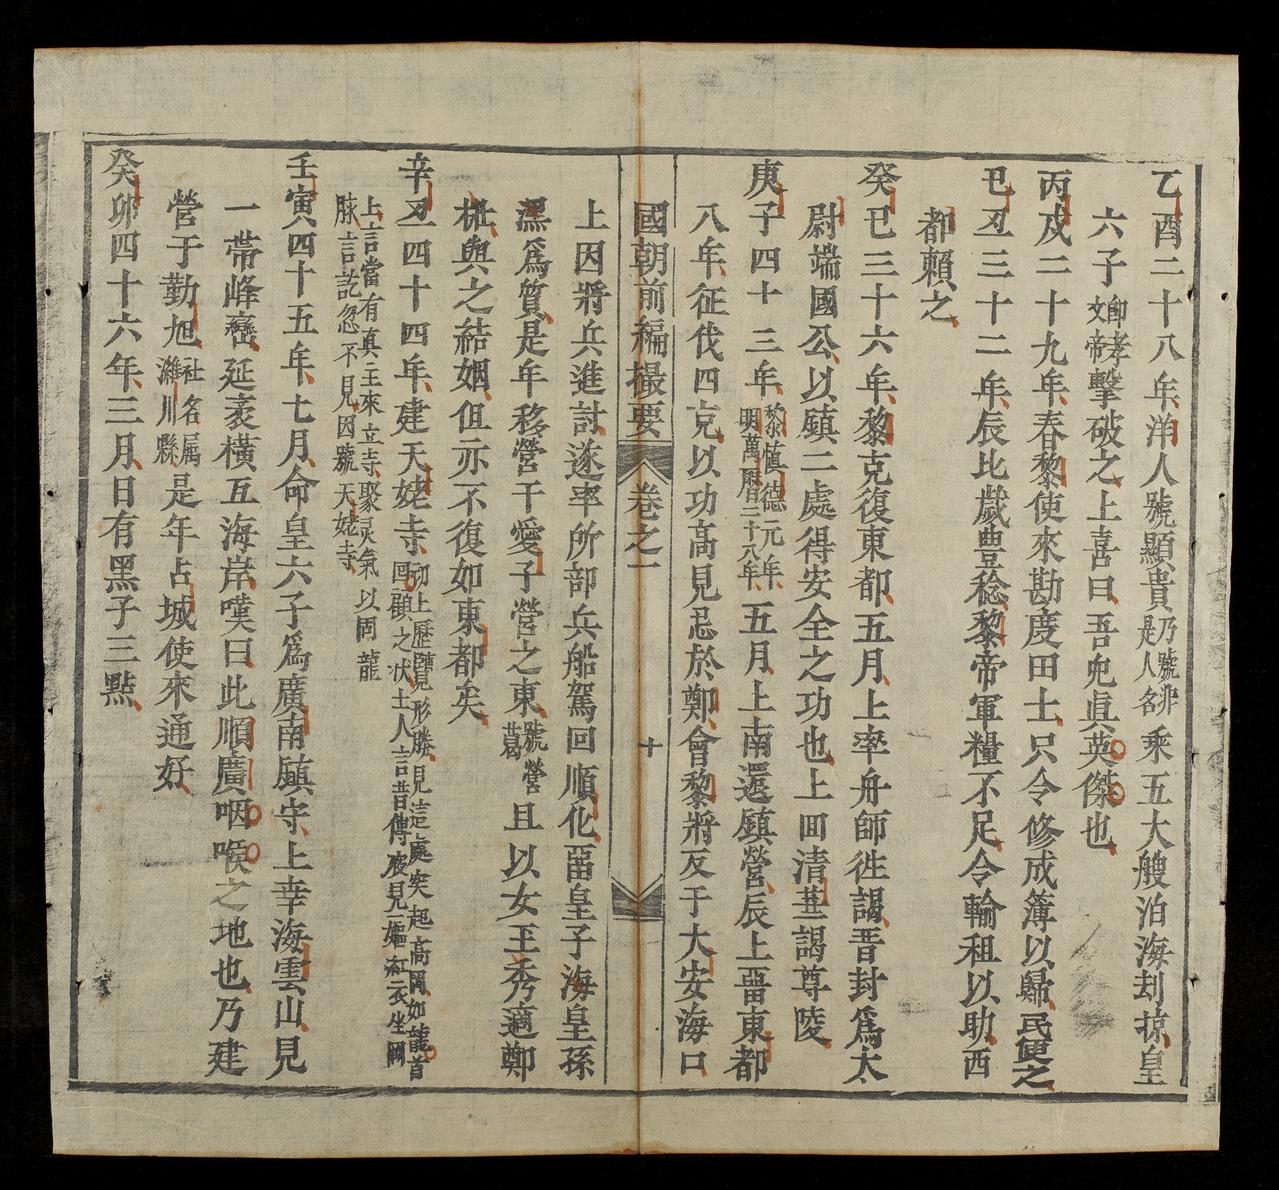 乙酉二十八年洋人號顯貴乃號非是人名乘五大艘泊海刦掠皇
六子即孝文帝擊破之上喜曰吾兒眞英傑也
丙戌二十九年春黎使來勘度田土只令修成簿以歸民便之
己丑三十二年辰比歲豊稔黎帝軍糧不足令輸租以助西
都賴之
癸巳三十六年黎克復東都五月上率舟師徃謁晋封爲太
尉端國公以鎮二處得安全之功也上回清華謁尊陵
庚子四十三年黎慎德元年明萬曆二十八年五月上南還鎮營辰上畱東都
八年征伐四克以功高見忌於鄭會黎將反于大安海口
國朝前編撮要 卷之一 十
上因將兵進討遂率所部兵船駕回順化畱皇子海皇孫
黑爲質是年移營于愛子營之東號營葛且以女玉秀適鄭
樁與之結姻但亦不復如東都矣
辛丑四十四年建天姥寺初上歷覽形勝見這處突起高岡如龍首回顧之狀土人言昔傳夜見一嫗紅衣坐岡
上言當有真主來立寺聚灵氣以固龍脉言訖忽不見因號天姥寺
壬寅四十五年七月命皇六子爲廣南鎮守上幸海雲山見
一帶峰巒延袤橫互海岸嘆曰此順廣咽喉之地也乃建
營于勤旭社名属濰川縣是年占城使來通好
癸卯四十六年三月日有黑子三點